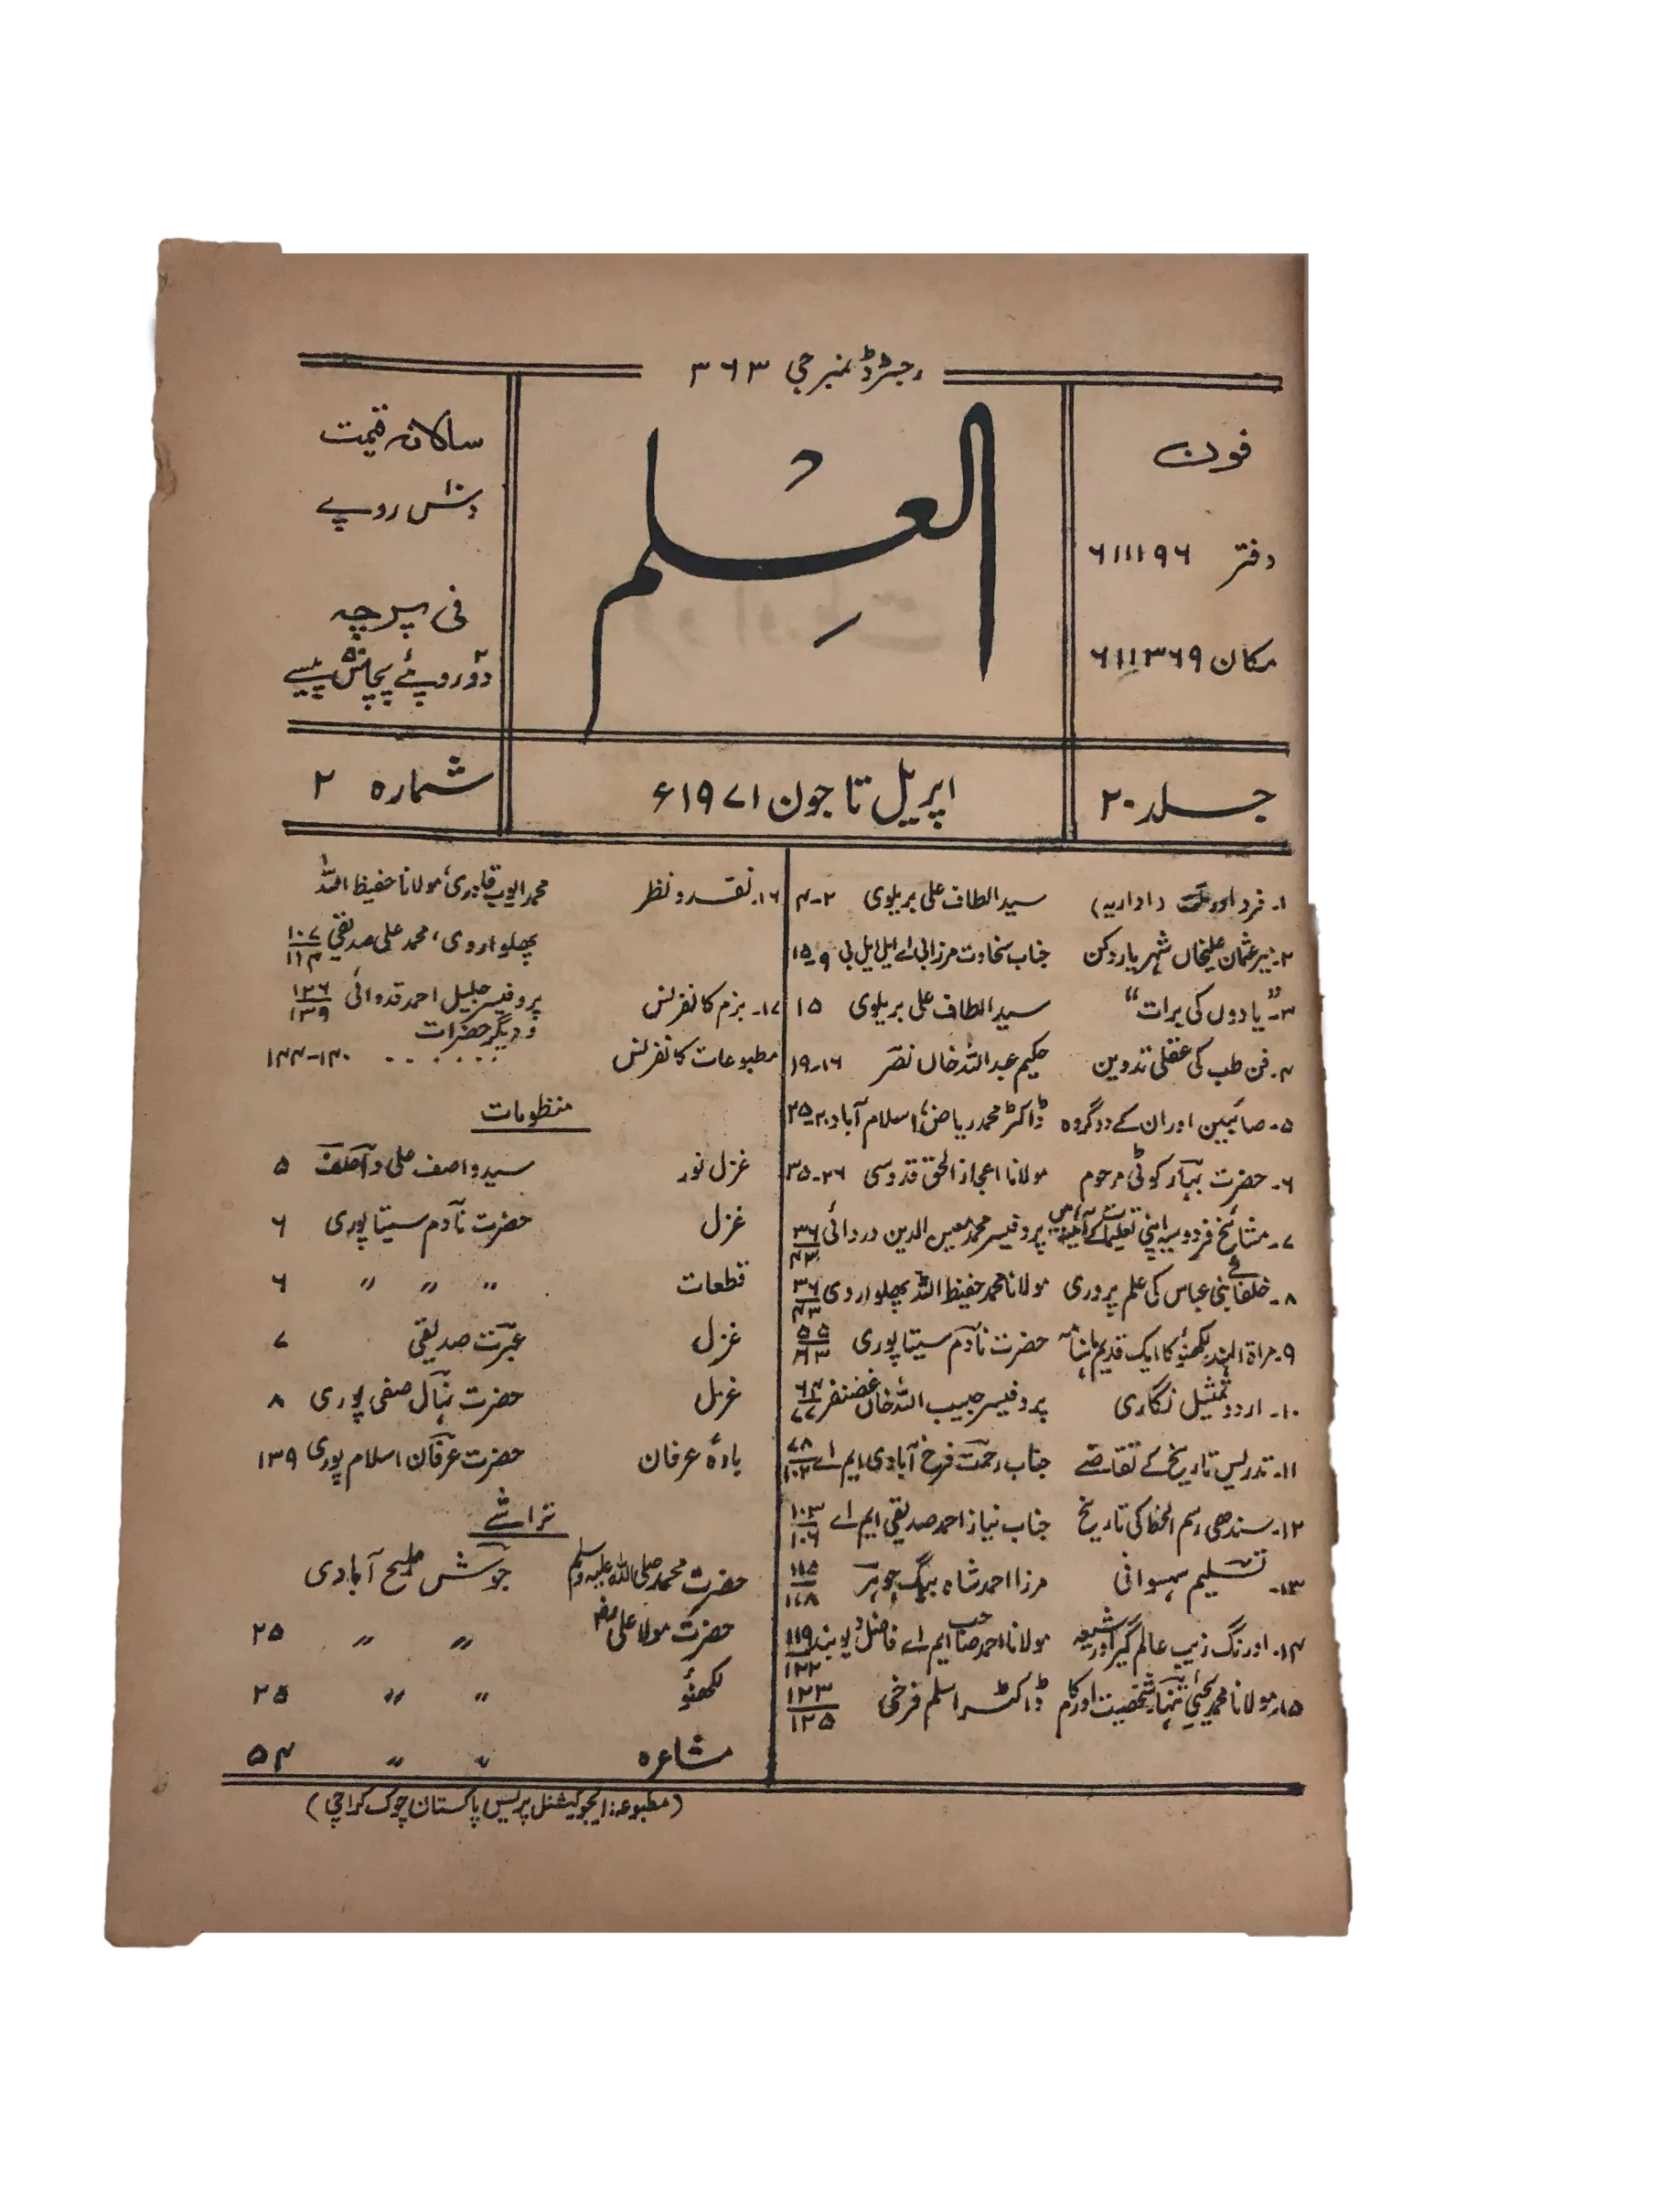 رجسٹرڈ نمبر جی ۳۶۳
فون
دفتر ۶۱۱۱۹۶
مکان ۶۱۱۳۶۹
العِلم
سالانہ قیمت
دس۱۰ روپے
فی پرچہ
دو۲ روپئے پچاس۵۰ پیسے
جلد ۲۰
اپریل تا جون ۱۹۷۱ء
شمارہ ۲
۱۔ فرد اور ملت (اداریہ) سید الطاف علی بریلوی ۲-۴
۲۔ میر عثمان علیخاں شہریار دکن جناب سخاوت مرزا بی اے ایل ایل بی ۹-۱۵
۳۔ "یادوں کی برات" سید الطاف علی بریلوی ۱۵
۴۔ فن طب کی عقلی تدوین حکیم عبداللہ خاں نصر ۱۶-۱۹
۵۔ صائبین اور ان کے دو گروہ ڈاکٹر محمد ریاض، اسلام آباد ۲۰-۲۵
۶۔ حضرت بہار کوٹی مرحوم مولانا اعجاز الحق قدوسی ۲۶-۳۵
۷۔ مشائخ فردوسیہ اپنی تعلیمات کے آئینہ میں پروفیسر محمد معین الدین دردائی ۳۶
۸۔ خلفائے بنی عباس کی علم پروری مولانا محمد حفیظ اللہ پھلواروی ۳۶/۴۳
۹۔ مراۃ الہند لکھنؤ کا ایک قدیم ماہنامہ حضرت نادم سیتاپوری ۵۵/۶۳
۱۰۔ اردو تمثیل نگاری پروفیسر حبیب اللہ خاں غضنفر ۶۴/۷۷
۱۱۔ تدریس تاریخ کے تقاضے جناب رحمت فرخ آبادی ایم اے ۷۸/۱۰۲
۱۲۔ سندھی رسم الخط کی تاریخ جناب نیاز احمد صدیقی ایم اے ۱۰۳/۱۰۶
۱۳۔ تسلیم سہسوانی مرزا احمد شاہ بیگ جوہر ۱۱۵/۱۱۸
۱۴۔ اورنگ زیب عالم گیر اور شیعہ مولانا احمد صاحب ایم اے فاضل دیوبند ۱۱۹/۱۲۲
۱۵۔ مولانا محمد یحییٰ تنہا، شخصیت اور کام ڈاکٹر اسلم فرخی ۱۲۳/۱۲۵
۱۶۔ نقد و نظر محمد ایوب قادری، مولانا حفیظ اللہ
پھلواروی، محمد علی صدیقی ۱۰۷/۱۱۴
۱۷۔ بزم کانفرنس پروفیسر جلیل احمد قدوائی ۱۲۶/۱۳۹
و دیگر حضرات
مطبوعات کانفرنس . . . . . . ۱۴۰-۱۴۴
منظومات
غزل نور سید واصف علی واصف ۵
غزل حضرت نادم سیتاپوری ۶
قطعات " " " ۶
غزل عبرت صدیقی ۷
غزل حضرت نہال صفی پوری ۸
بادۂ عرفان حضرت عرفان اسلام پوری ۱۳۹
تراشے
حضرت محمد صلی اللہ علیہ وسلم جوش ملیح آبادی
حضرت مولا علی " " ۲۵
لکھنؤ " " ۲۵
مشاعرہ " " ۵۴
(مطبوعہ: ایجوکیشنل پریس پاکستان چوک کراچی)